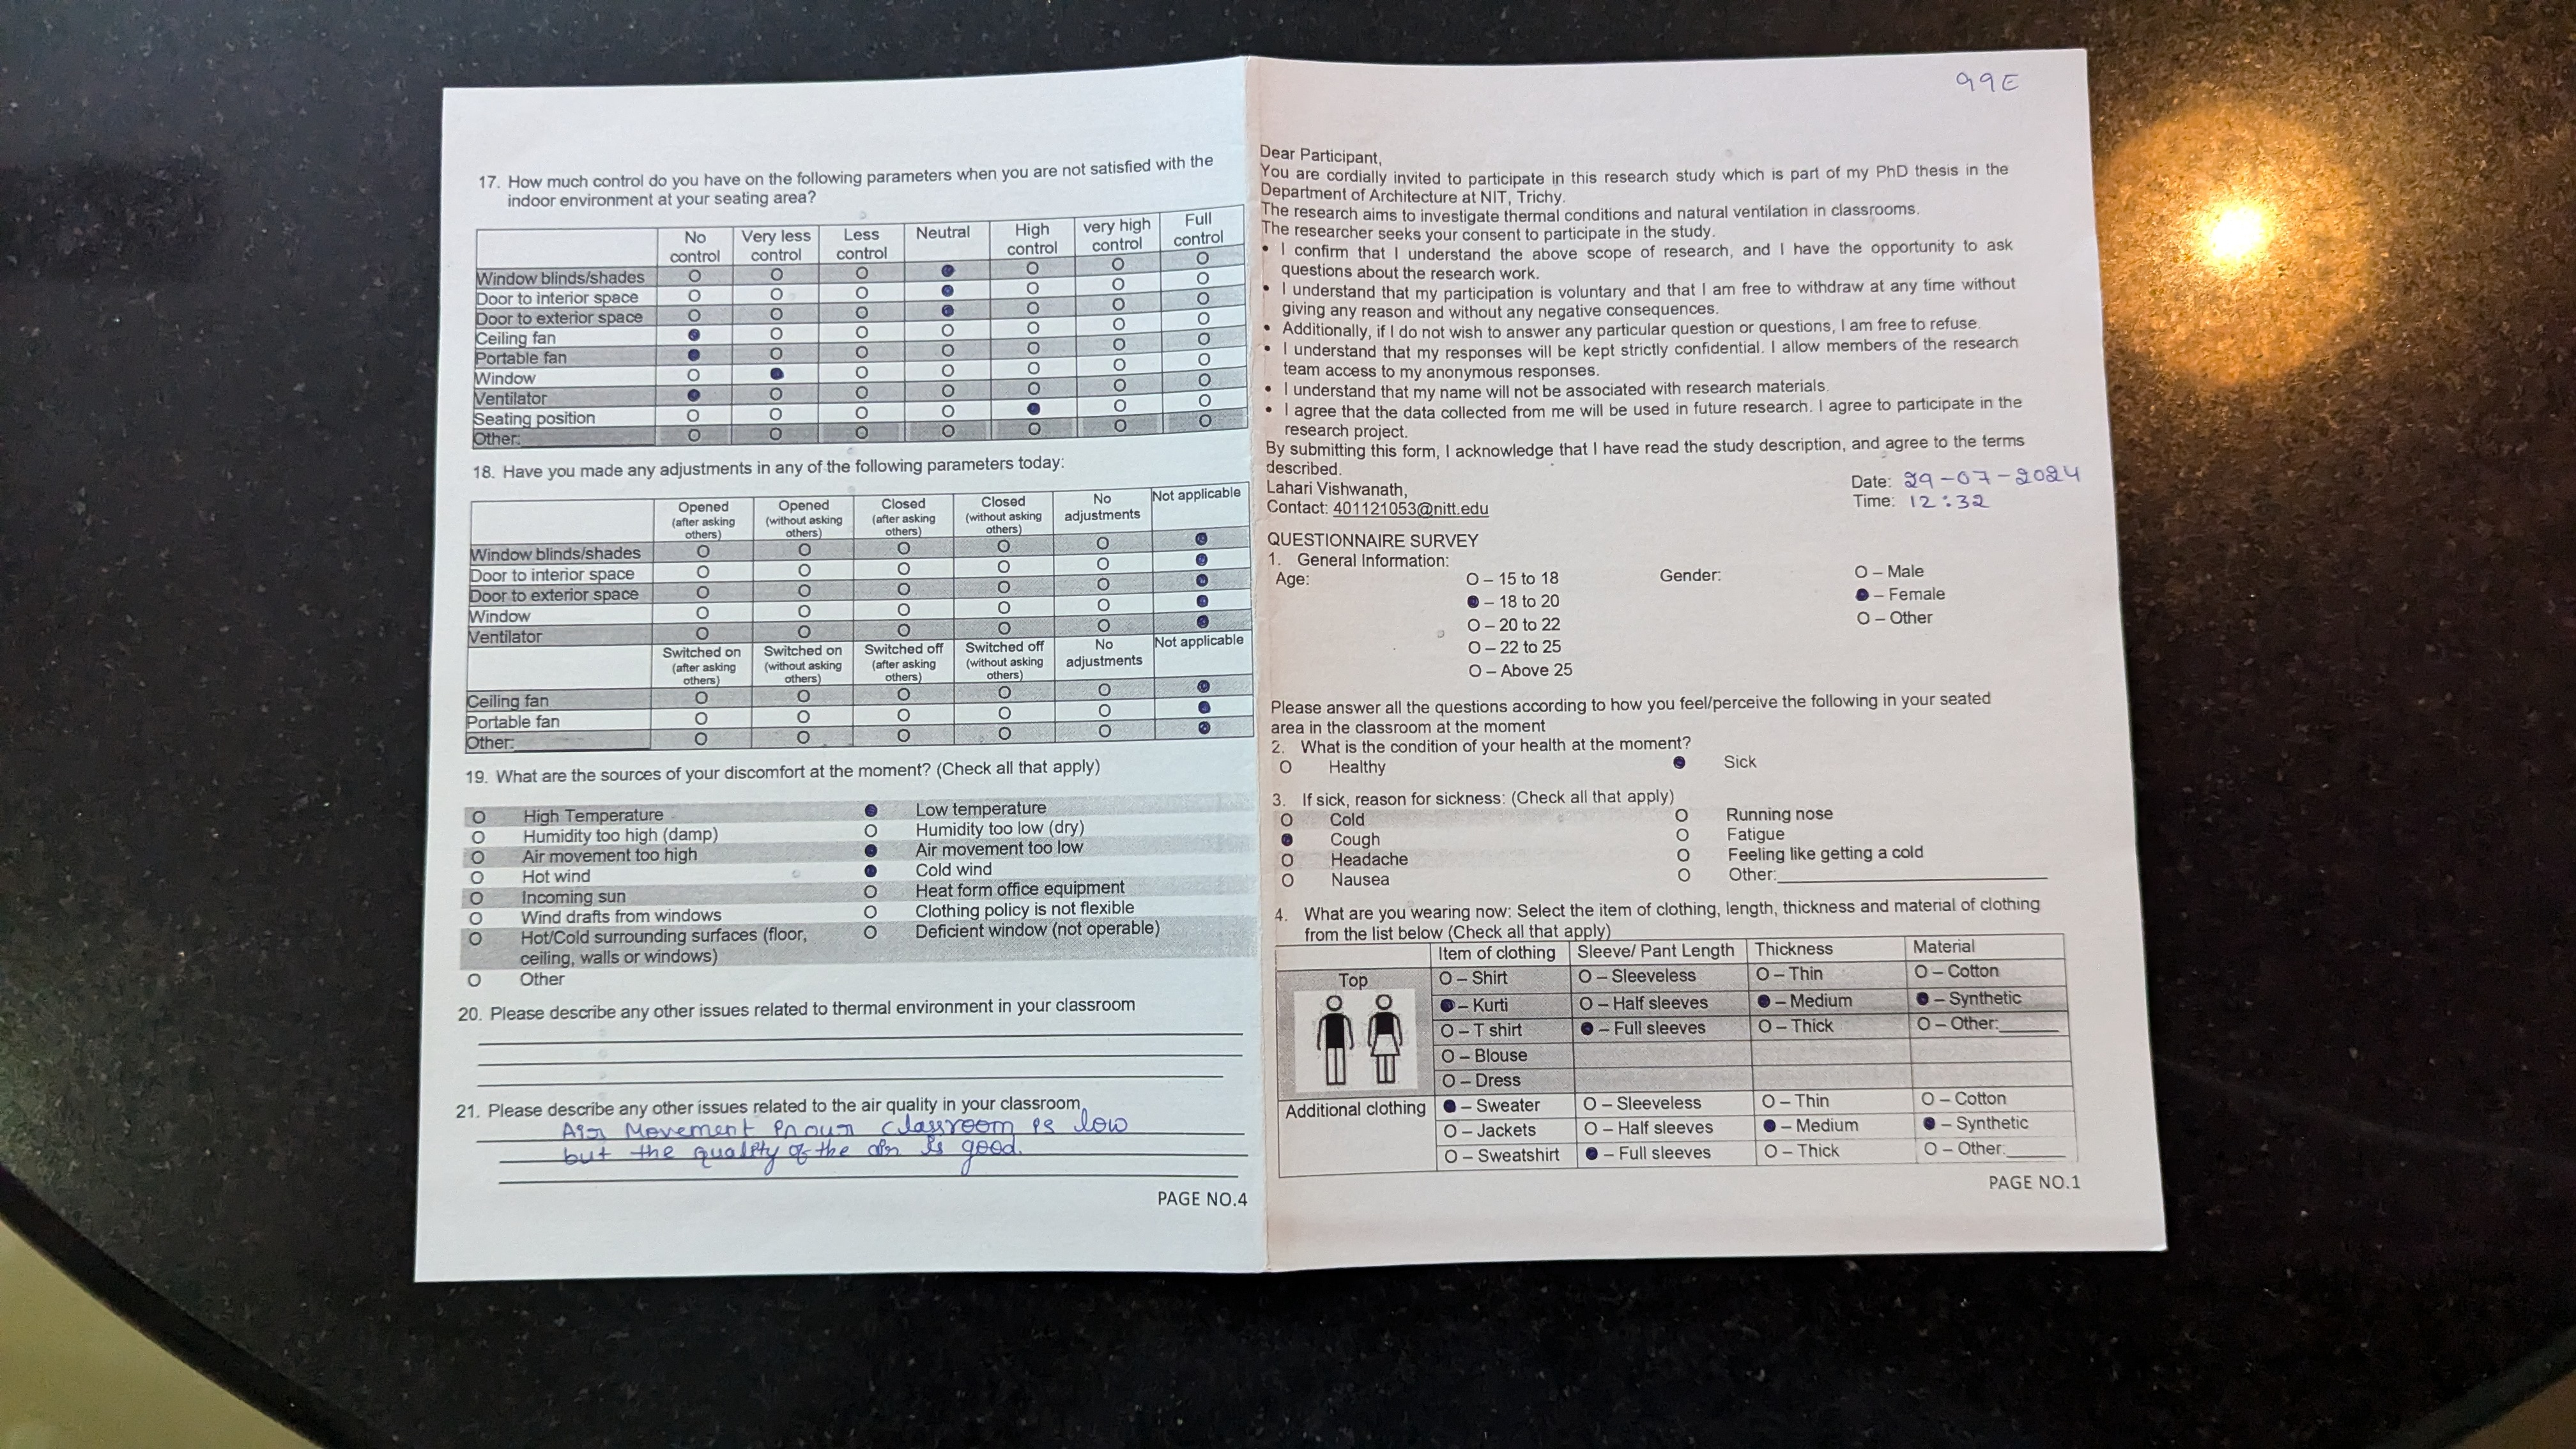 17. How much control do you have on the following parameters when you are not satisfied with the
indoor environment at your seating area?
No control Very less control Less control Neutral High control very high control Full control
Window blinds/shades O O O ● O O O
Door to interior space O O O ● O O O
Door to exterior space O O O ● O O O
Ceiling fan ● O O O O O O
Portable fan ● O O O O O O
Window O ● O O O O O
Ventilator ● O O O O O O
Seating position O O O O ● O O
Other: O O O O O O O
18. Have you made any adjustments in any of the following parameters today:
Opened (after asking others) Opened (without asking others) Closed (after asking others) Closed (without asking others) No adjustments Not applicable
Window blinds/shades O O O O O ●
Door to interior space O O O O O ●
Door to exterior space O O O O O ●
Window O O O O O ●
Ventilator O O O O O ●
Switched on (after asking others) Switched on (without asking others) Switched off (after asking others) Switched off (without asking others) No adjustments Not applicable
Ceiling fan O O O O O ●
Portable fan O O O O O ●
Other: O O O O O ●
19. What are the sources of your discomfort at the moment? (Check all that apply)
O High Temperature ● Low temperature
O Humidity too high (damp) O Humidity too low (dry)
O Air movement too high ● Air movement too low
O Hot wind ● Cold wind
O Incoming sun O Heat form office equipment
O Wind drafts from windows O Clothing policy is not flexible
O Hot/Cold surrounding surfaces (floor, O Deficient window (not operable)
ceiling, walls or windows)
O Other
20. Please describe any other issues related to thermal environment in your classroom
21. Please describe any other issues related to the air quality in your classroom
Air Movement in our classroom is low
but the quality of the air is good.
PAGE NO.4
99E
Dear Participant,
You are cordially invited to participate in this research study which is part of my PhD thesis in the
Department of Architecture at NIT, Trichy.
The research aims to investigate thermal conditions and natural ventilation in classrooms.
The researcher seeks your consent to participate in the study.
• I confirm that I understand the above scope of research, and I have the opportunity to ask
questions about the research work.
• I understand that my participation is voluntary and that I am free to withdraw at any time without
giving any reason and without any negative consequences.
• Additionally, if I do not wish to answer any particular question or questions, I am free to refuse.
• I understand that my responses will be kept strictly confidential. I allow members of the research
team access to my anonymous responses.
• I understand that my name will not be associated with research materials.
• I agree that the data collected from me will be used in future research. I agree to participate in the
research project.
By submitting this form, I acknowledge that I have read the study description, and agree to the terms
described.
Date: 29-07-2024
Lahari Vishwanath,
Time: 12:32
Contact: 401121053@nitt.edu
QUESTIONNAIRE SURVEY
1. General Information:
Age: O – 15 to 18 Gender: O – Male
● – 18 to 20 ● – Female
O – 20 to 22 O – Other
O – 22 to 25
O – Above 25
Please answer all the questions according to how you feel/perceive the following in your seated
area in the classroom at the moment
2. What is the condition of your health at the moment?
O Healthy ● Sick
3. If sick, reason for sickness: (Check all that apply)
O Cold O Running nose
● Cough O Fatigue
O Headache O Feeling like getting a cold
O Nausea O Other:
4. What are you wearing now: Select the item of clothing, length, thickness and material of clothing
from the list below (Check all that apply)
Item of clothing Sleeve/ Pant Length Thickness Material
Top O – Shirt O – Sleeveless O – Thin O – Cotton
● – Kurti O – Half sleeves ● – Medium ● – Synthetic
O – T shirt ● – Full sleeves O – Thick O – Other:
O – Blouse
O – Dress
Additional clothing ● – Sweater O – Sleeveless O – Thin O – Cotton
O – Jackets O – Half sleeves ● – Medium ● – Synthetic
O – Sweatshirt ● – Full sleeves O – Thick O – Other:
PAGE NO.1